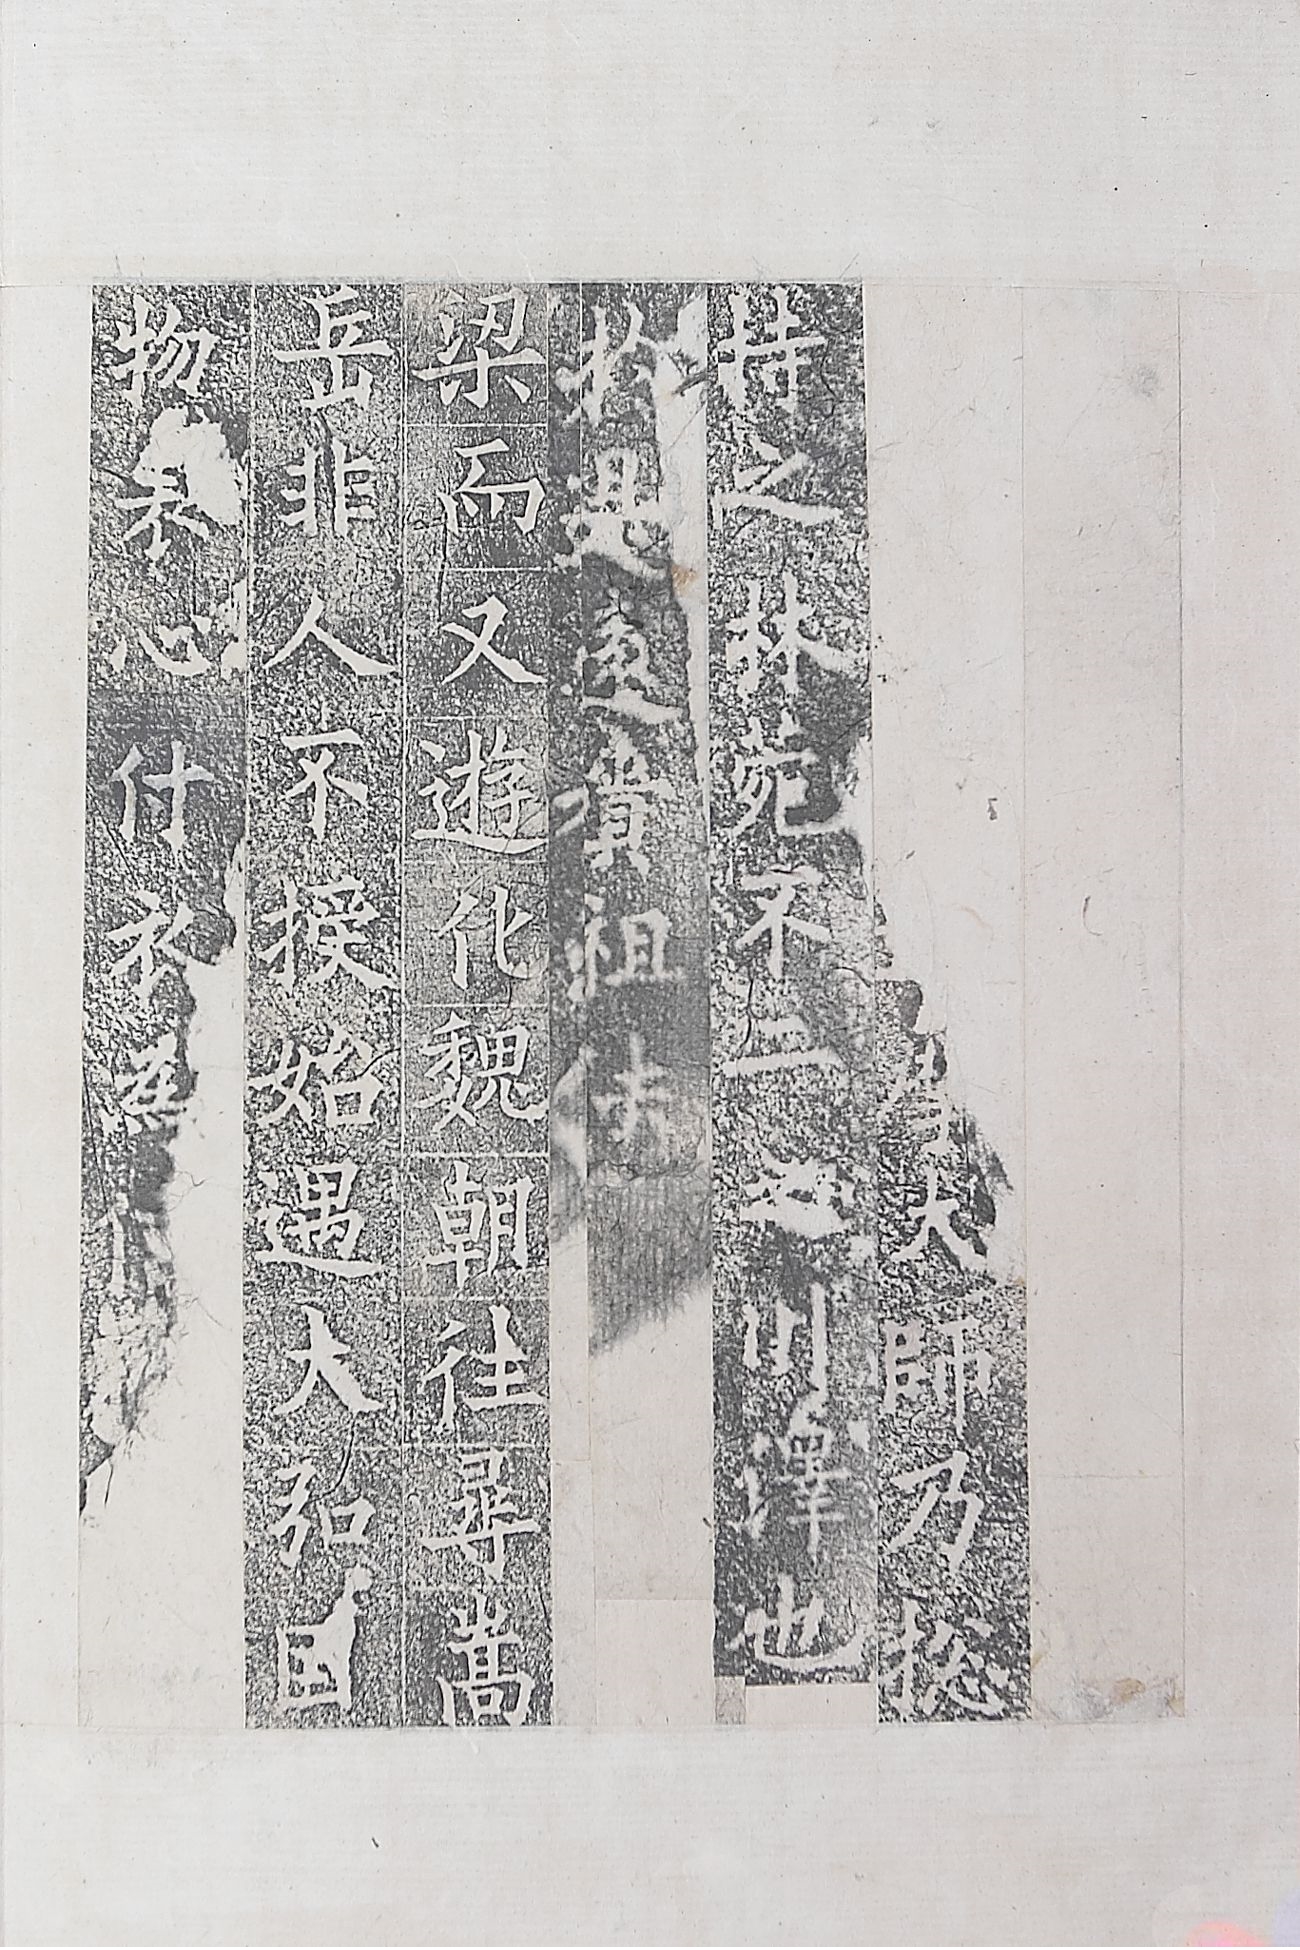 大師乃総
持之林苑不二之川澤也
於迦遠賓祖法
梁而又遊化魏朝往尋嵩
岳非人不授始遇大弘因
物表心付衣